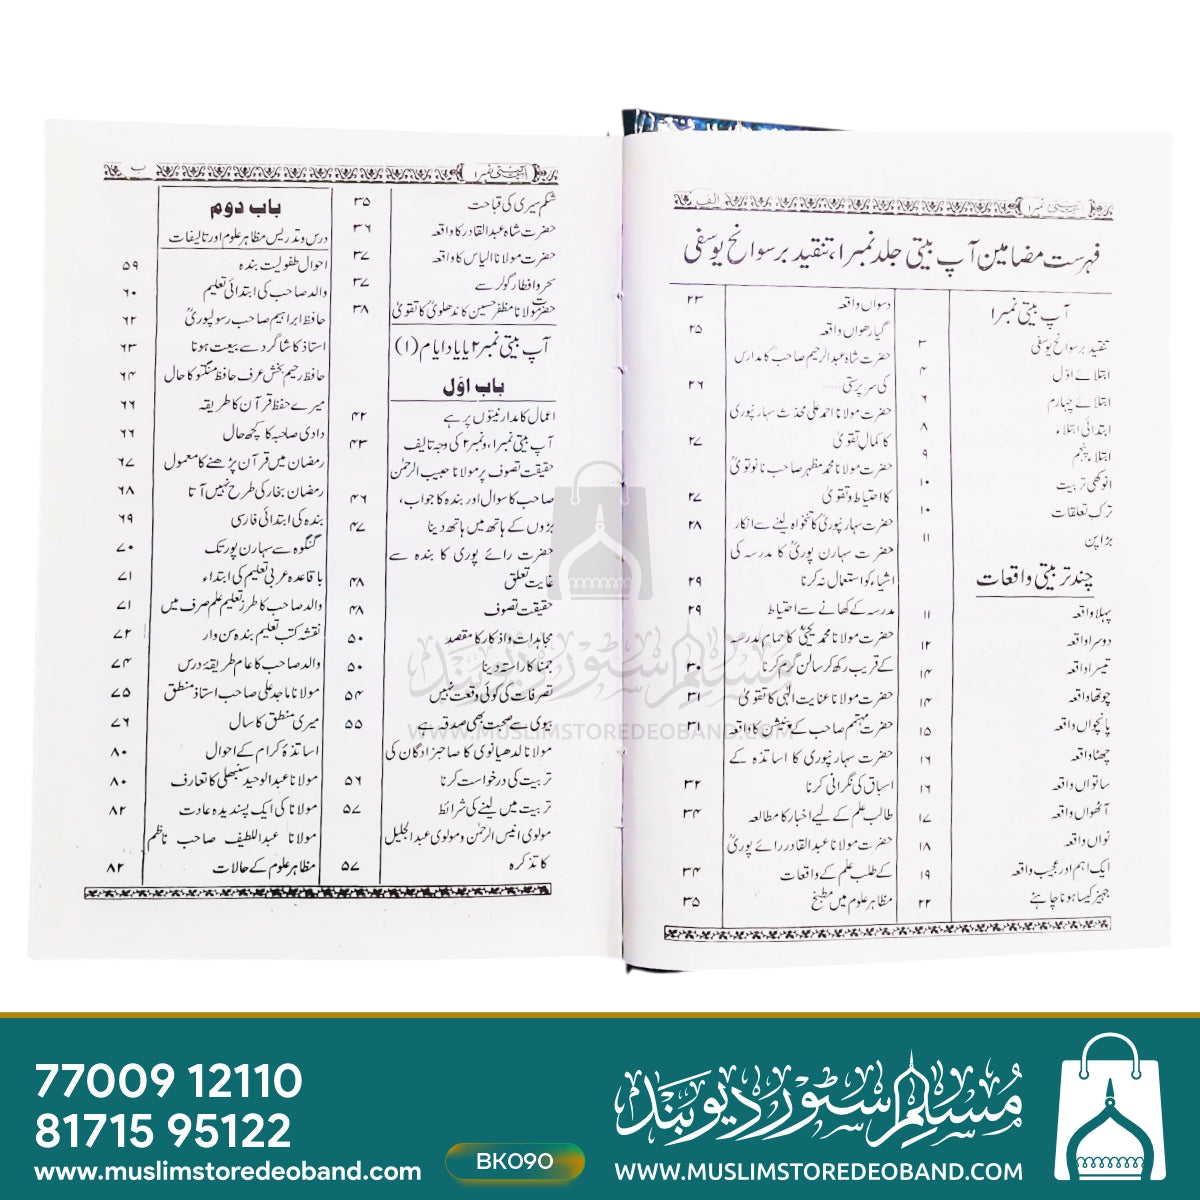 آپ بیتی نمبر۱
الف
فہرست مضامین آپ بیتی جلد نمبر۱، تنقید بر سوانح یوسفی
آپ بیتی نمبر۱
تنقید بر سوانح یوسفی ۳
ابتلائے اوّل ۴
ابتلائے چہارم ۶
ابتدائی ابتلاء ۸
ابتلاء پنجم ۹
انوکھی تربیت ۱۰
ترکِ تعلقات ۱۰
بڑا پن ۱۱
چند تربیتی واقعات
پہلا واقعہ ۱۱
دوسرا واقعہ ۱۲
تیسرا واقعہ ۱۴
چوتھا واقعہ ۱۴
پانچواں واقعہ ۱۵
چھٹا واقعہ ۱۶
ساتواں واقعہ ۱۶
آٹھواں واقعہ ۱۷
نواں واقعہ ۱۸
ایک اہم اور عجیب واقعہ ۱۹
جہیز کیسا ہونا چاہئے ۲۲
دسواں واقعہ ۲۳
گیارھواں واقعہ ۲۵
حضرت شاہ عبدالرحیم صاحبؒ کا مدارس
کی سرپرستی...... ۲۶
حضرت مولانا احمد علی محدث سہارنپوری
کا کمال تقویٰ ۲۷
حضرت مولانا محمد مظہر صاحب نانوتویؒ
کا احتیاط وتقویٰ ۲۷
حضرت سہارنپوریؒ کا تنخواہ لینے سے انکار ۲۸
حضرت سہارن پوریؒ کا مدرسہ کی
اشیاء کو استعمال نہ کرنا ۲۹
مدرسہ کے کھانے سے احتیاط ۲۹
حضرت مولانا محمد یحییٰؒ کا حمام مدرسہ
کے قریب رکھ کر سالن گرم کرنا ۳۰
حضرت مولانا عنایت الٰہی کا تقویٰ ۳۱
حضرت مہتمم صاحب کے پنشن کا واقعہ ۳۱
حضرت سہارنپوری کا اساتذہ کے
اسباق کی نگرانی کرنا ۳۲
طالب علم کے لیے اخبار کا مطالعہ ۳۴
حضرت مولانا عبدالقادر رائے پوریؒ
کے طلب علم کے واقعات ۳۴
مظاہر علوم میں مطبخ ۳۵
آپ بیتی نمبر۱
ب
شکم سیری کی قباحت ۳۵
حضرت شاہ عبدالقادر کا واقعہ ۳۶
حضرت مولانا الیاس کا واقعہ ۳۷
سحر وافطار گولر سے ۳۷
حضرت مولانا مظفر حسین کاندھلویؒ کا تقویٰ ۳۸
آپ بیتی نمبر۲ یا یاد ایام (۱)
باب اوّل
اعمال کا مدار نیتوں پر ہے ۴۲
آپ بیتی نمبر۱، ونمبر۲ کی وجہ تالیف ۴۳
حقیقت تصوف پر مولانا حبیب الرحمٰن
صاحب کا سوال اور بندہ کا جواب، ۴۶
بڑوں کے ہاتھ میں ہاتھ دینا ۴۷
حضرت رائے پوری کا بندہ سے
غایت تعلق ۴۸
حقیقت تصوف ۴۸
مجاہدات واذکار کا مقصد ۵۰
جمنا کا راستہ دینا ۵۰
تصرفات کی کوئی وقعت نہیں ۵۴
بیوی سے صحبت بھی صدقہ ہے ۵۵
مولانا لدھیانوی کا صاحبزادگان کی
تربیت کی درخواست کرنا ۵۶
تربیت میں لینے کی شرائط ۵۷
مولوی انیس الرحمٰن ومولوی عبدالجلیل
کا تذکرہ ۵۷
باب دوم
درس وتدریس مظاہر علوم اور تالیفات
احوال طفولیت بندہ ۵۹
والد صاحب کی ابتدائی تعلیم ۶۰
حافظ ابراہیم صاحب رسولپوریؒ ۶۲
استاذ کا شاگرد سے بیعت ہونا ۶۳
حافظ رحیم بخش عرف حافظ منگتو کا حال ۶۴
میرے حفظ قرآن کا طریقہ ۶۶
دادی صاحبہ کا کچھ حال ۶۶
رمضان میں قرآن پڑھنے کا معمول ۶۷
رمضان بخار کی طرح نہیں آتا ۶۸
بندہ کی ابتدائی فارسی ۶۹
گنگوہ سے سہارن پور تک ۷۰
باقاعدہ عربی تعلیم کی ابتداء ۷۱
والد صاحب کا طرز تعلیم علم صرف میں ۷۱
نقشہ کتب تعلیم بندہ سن وار ۷۲
والد صاحب کا عام طریقۂ درس ۷۴
مولانا ماجد علی صاحب استاذ منطق ۷۵
میری منطق کا سال ۷۶
اساتذۂ کرام کے احوال ۸۰
مولانا عبدالوحید سنبھلی کا تعارف ۸۰
مولانا کی ایک پسندیدہ عادت ۸۲
مولانا عبداللطیف صاحب ناظم
مظاہر علوم کے حالات ۸۲
مسلم سٹور دیوبند
WWW.MUSLIMSTOREDEOBAND.COM
77009 12110
81715 95122
www.muslimstoredeoband.com
BK090
مسلم سٹور دیوبند
WWW.MUSLIMSTOREDEOBAND.COM